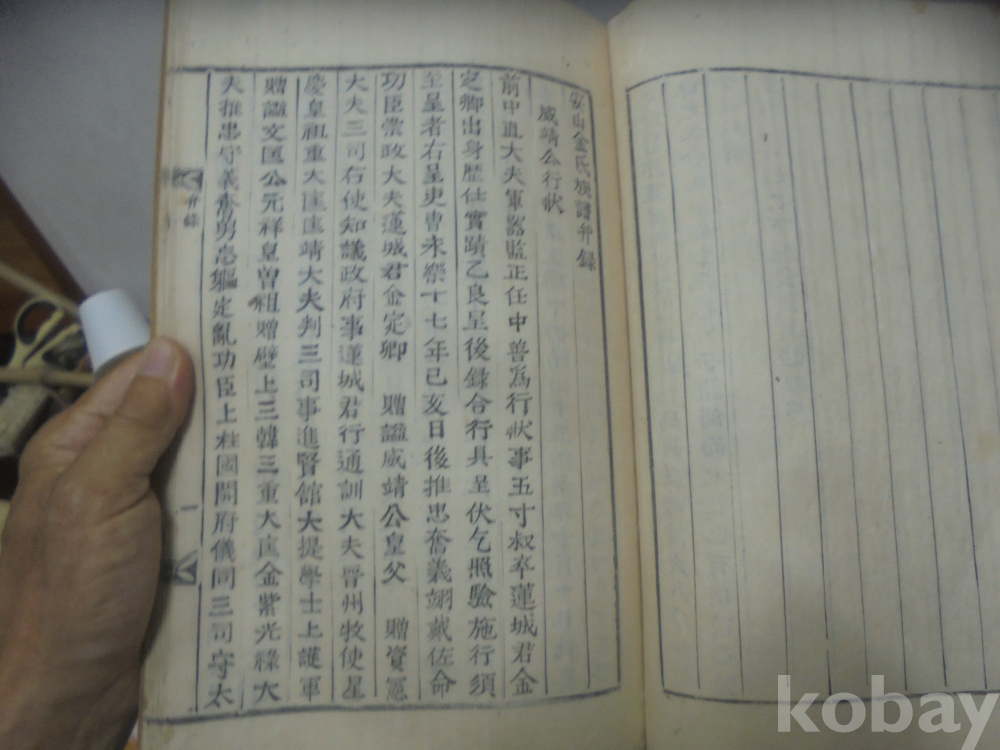 安山金氏族譜弁錄
威靖公行狀
前中直大夫軍器監正任中善為行狀事五寸叔卒蓮城君金
定卿出身歷仕實蹟乙良呈後錄合行具呈伏乞照驗施行須
至呈者右呈吏曹永樂十七年己亥日後推忠奮義翊戴佐命
功臣崇政大夫蓮城君金定卿 贈謚威靖公皇父 贈資憲
大夫三司右使知議政府事蓮城君行通訓大夫晋州牧使星
慶皇祖重大匡匡靖大夫判三司事進賢館大提學士上護軍
贈謚文匡公元祥皇曾祖贈壁上三韓三重大匡金紫光祿大
夫推忠守義奮勇忘軀定亂功臣上柱國開府儀同三司守太
弁錄
一
kobay